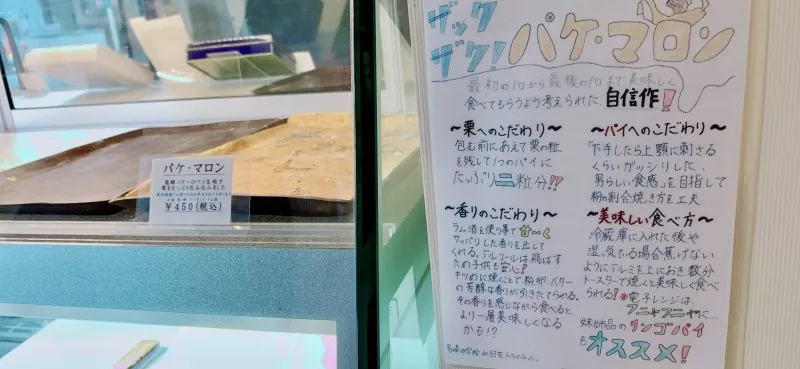 パケ・マロン
発酵バターのパイ生地で
栗をたっぷり包み込みました
¥450(税込)
ザック
ザク!
パケ・マロン
最初の1口から最後の1口まで美味しく
食べてもらうよう考えられた 自信作!
〜栗へのこだわり〜
包む前にあえて栗の粒
を残して1つのパイに
たっぷり二粒分!!
〜パイへのこだわり〜
「下手したら上顎に刺さる
くらいガッシリした、
男らしい食感」を目指して
粉の割合焼き方を工夫
〜香りのこだわり〜
ラム酒を使う事で甘〜く
サッパリした香りを出して
くれる。アルコールは飛ばす
ため子供も安心!
キツめに焼くことで粉、卵、バター
の芳醇な香りが引きたてられる。
その香りを感じながら食べると、
より一層美味しくなる
かも!?
〜美味しい食べ方〜
冷蔵庫に入れた後や
湿っている場合焦げない
ようにアルミを上におき数分
トースターで焼くと美味しく食べ
られる!※電子レンジは、
フニャフニャに…
姉妹品のリンゴパイ
もオススメ!